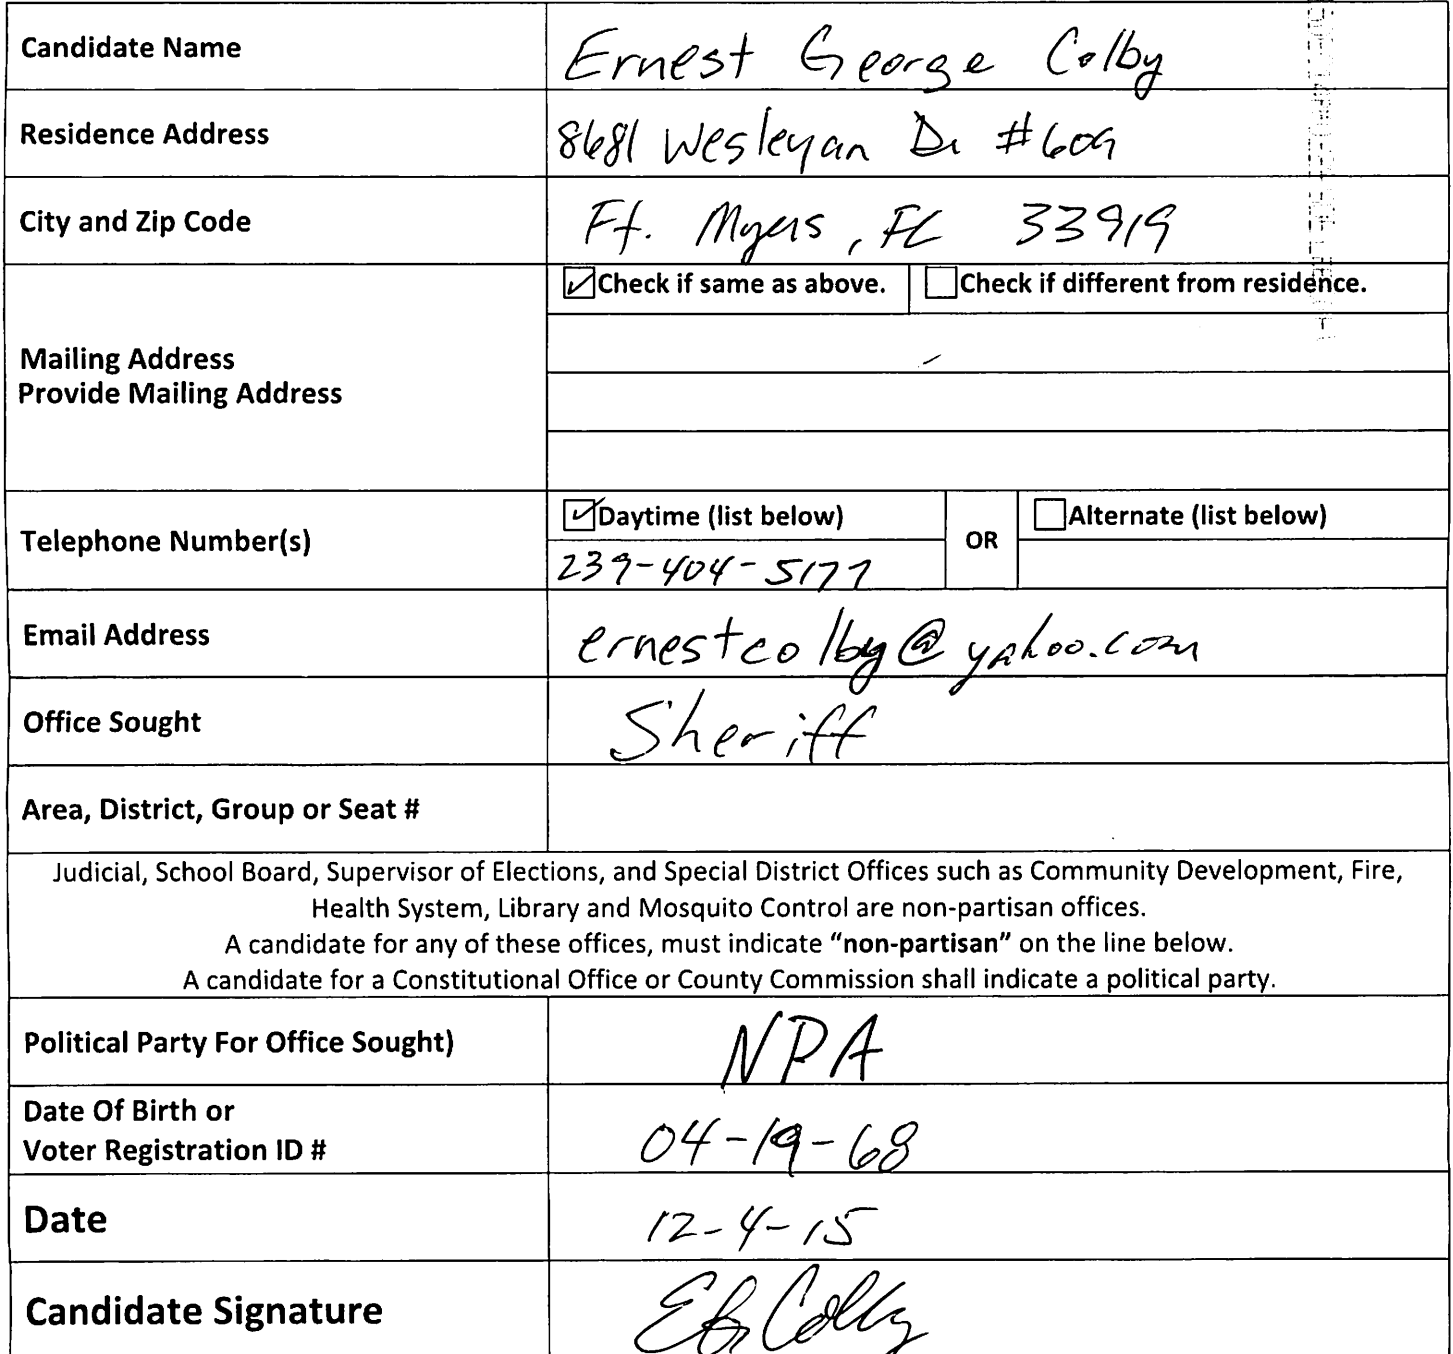 Candidate Name Ernest George Colby
Residence Address 8681 Wesleyan Dr #609
City and Zip Code Ft. Myers, FL 33919
Check if same as above. Check if different from residence.
Mailing Address
Provide Mailing Address
Daytime (list below) Alternate (list below)
Telephone Number(s) OR
239-404-5177
Email Address ernestcolby@yahoo.com
Office Sought Sheriff
Area, District, Group or Seat #
Judicial, School Board, Supervisor of Elections, and Special District Offices such as Community Development, Fire,
Health System, Library and Mosquito Control are non-partisan offices.
A candidate for any of these offices, must indicate "non-partisan" on the line below.
A candidate for a Constitutional Office or County Commission shall indicate a political party.
Political Party For Office Sought) NPA
Date Of Birth or
Voter Registration ID # 04-19-68
Date 12-4-15
Candidate Signature EG Colby